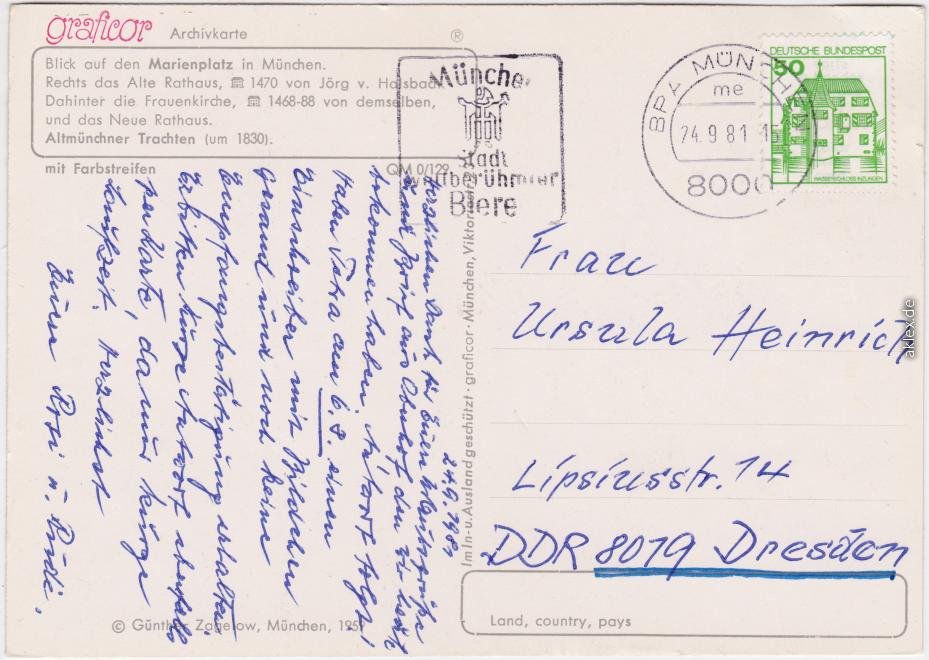 graficor Archivkarte ®
Blick auf den Marienplatz in München.
Rechts das Alte Rathaus, 1470 von Jörg v. Halsbach.
Dahinter die Frauenkirche, 1468-88 von demselben,
und das Neue Rathaus.
Altmünchner Trachten (um 1830).
mit Farbstreifen
QM 0/129
München
Stadt
weltberühmter
Biere
BPA MÜNCHEN
me
24.9.81-15
8000
DEUTSCHE BUNDESPOST
50
WASSERSCHLOSS INZLINGEN
24.9.1981
Herzlichen Dank für Euren Urlaubsgrüße
und Brief aus Oberhof den wir heute
bekommen haben. Antort folgt!
Haben Petra am 6.8. einen
Einschreiber mit Bildchern
gesand und noch keine
Empfangsbestätigung erhalten
Erbitten kurze Antwort ebenfalls
per Karte, da nur kurze
Laufzeit. Herzlichst
Eure Rosi u. Rudi.
Im In- u. Ausland geschützt · graficor · München, Viktoriastr.
Frau
Ursula Heinrich
Lipsiusstr. 14
DDR 8019 Dresden
Land, country, pays
© Günther Zagelow, München, 1959
aklex.de